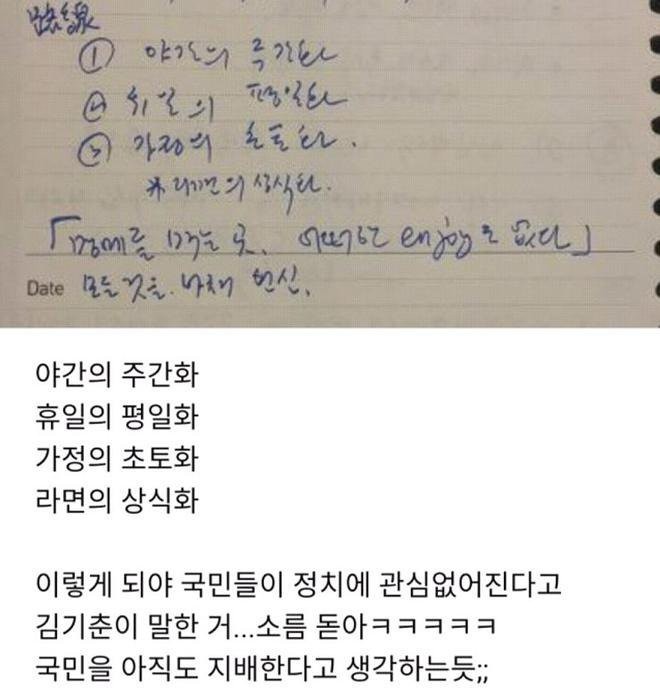 ① 야간의 주간화
② 휴일의 평일화
③ 가정의 초토화.
* 라면의 상식화.
「명예를 먹는 곳. 어떠한 enjoy도 없다」
Date 모든 것을 바쳐 헌신.
야간의 주간화
휴일의 평일화
가정의 초토화
라면의 상식화
이렇게 되야 국민들이 정치에 관심없어진다고
김기춘이 말한 거...소름 돋아ㅋㅋㅋㅋㅋ
국민을 아직도 지배한다고 생각하는듯;;